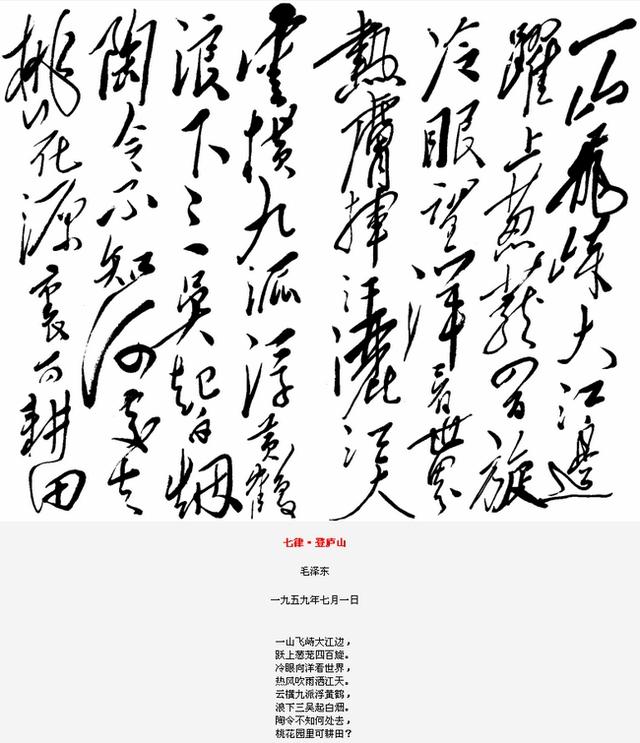 一山飛峙大江邊
躍上葱蘢四百旋
冷眼望洋看世界
熱膚揮汗灑江天
雲橫九派浮黃鶴
浪下三吳起白烟
陶令不知何處去
桃花源裏可耕田
七律·登庐山
毛泽东
一九五九年七月一日
一山飞峙大江边，
跃上葱茏四百旋。
冷眼向洋看世界，
热风吹雨洒江天。
云横九派浮黄鹤，
浪下三吴起白烟。
陶令不知何处去，
桃花园里可耕田？